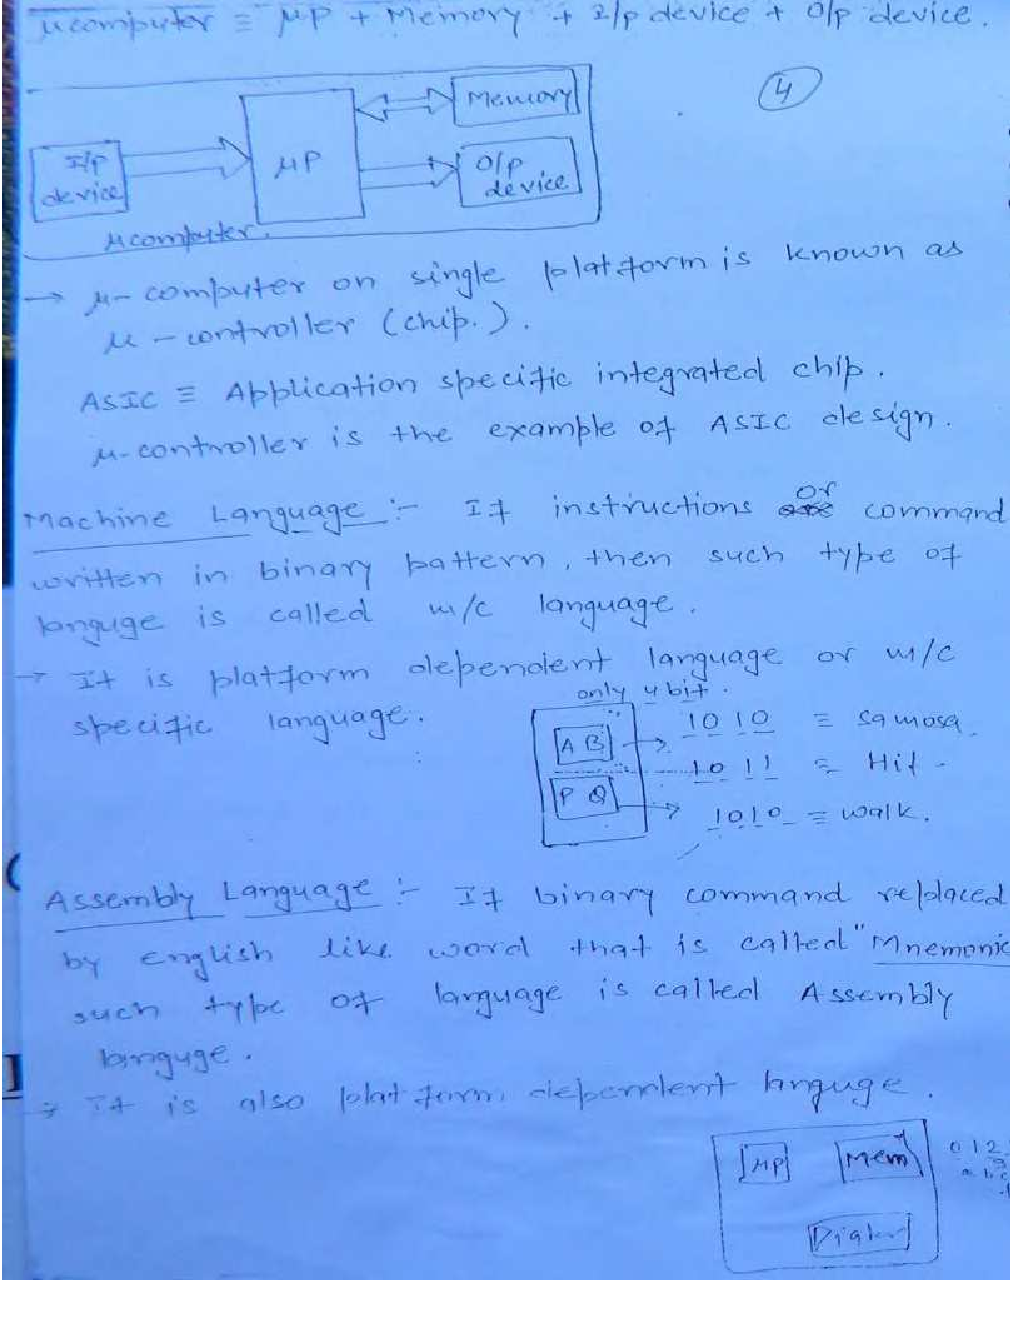 μcomputer ≡ μP + Memory + I/p device + O/p device.
4
Memory
I/p
device
μP
O/p
device
μcomputer.
→ μ-computer on single platform is known as
μ-controller (chip.).
ASIC ≡ Application specific integrated chip.
μ-controller is the example of ASIC design.
Machine Language :- If instructions or command
written in binary pattern, then such type of
languge is called m/c language.
→ It is platform dependent language or m/c
specific language.
only 4 bit.
A B → 1010 ≡ samosa
1011 ≡ Hit
P Q → 1010 ≡ walk.
Assembly Language :- If binary command replaced
by english like word that is called "Mnemonic
such type of language is called Assembly
languge.
→ It is also platform dependent languge.
μP
Mem
0 1 2